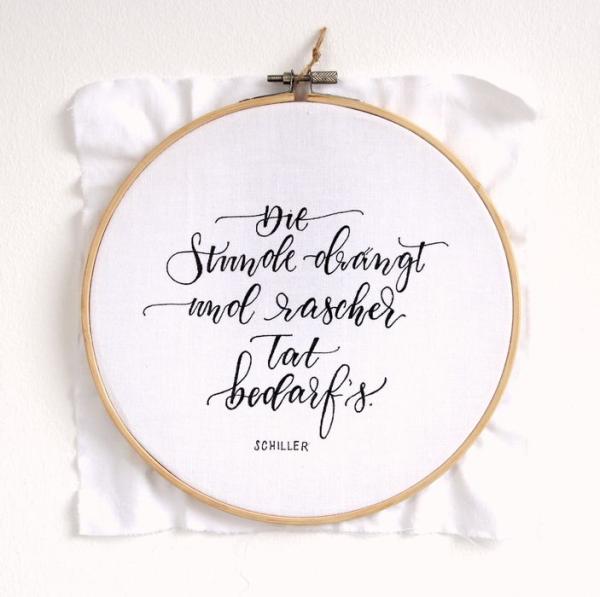 Die
Stunde drängt
und rascher
Tat
bedarf's.
SCHILLER